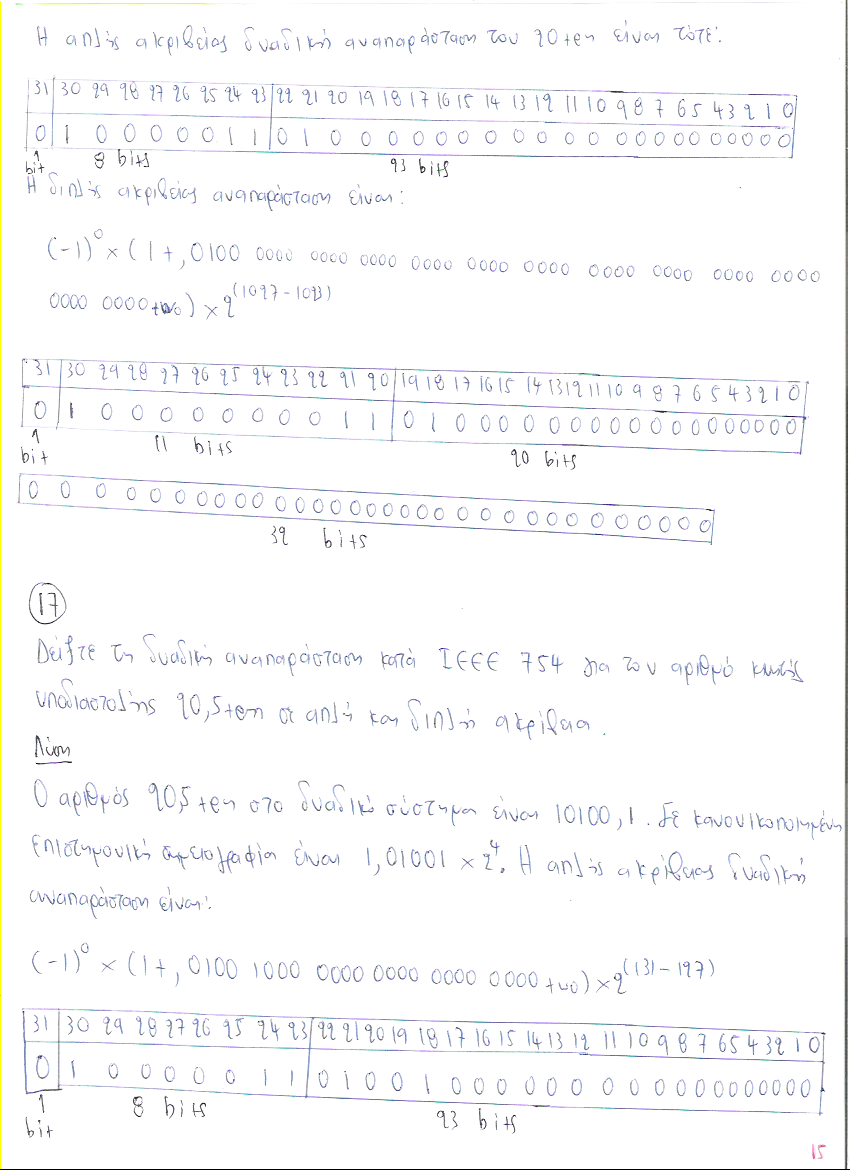 Η απλής ακριβείας δυαδική αναπαράσταση του 20ten είναι τότε:
31 30 29 28 27 26 25 24 23 22 21 20 19 18 17 16 15 14 13 12 11 10 9 8 7 6 5 4 3 2 1 0
0 1 0 0 0 0 0 1 1 0 1 0 0 0 0 0 0 0 0 0 0 0 0 0 0 0 0 0 0 0 0 0
1 bit 8 bits 23 bits
Η διπλής ακριβείας αναπαράσταση είναι:
(-1)^0 × (1+,0100 0000 0000 0000 0000 0000 0000 0000 0000 0000 0000
0000 0000two) × 2^(1027-1023)
31 30 29 28 27 26 25 24 23 22 21 20 19 18 17 16 15 14 13 12 11 10 9 8 7 6 5 4 3 2 1 0
0 1 0 0 0 0 0 0 0 0 1 1 0 1 0 0 0 0 0 0 0 0 0 0 0 0 0 0 0 0 0 0
1 bit 11 bits 20 bits
0 0 0 0 0 0 0 0 0 0 0 0 0 0 0 0 0 0 0 0 0 0 0 0 0 0 0 0 0 0 0 0
32 bits
17
Δείξτε τη δυαδική αναπαράσταση κατά IEEE 754 για τον αριθμό κινητής
υποδιαστολής 20,5ten σε απλή και διπλή ακρίβεια.
Λύση
Ο αριθμός 20,5ten στο δυαδικό σύστημα είναι 10100,1. Σε κανονικοποιημένη
επιστημονική σημειογραφία είναι 1,01001 × 2^4. Η απλής ακρίβειας δυαδική
αναπαράσταση είναι:
(-1)^0 × (1+,0100 1000 0000 0000 0000 0000two) × 2^(131-127)
31 30 29 28 27 26 25 24 23 22 21 20 19 18 17 16 15 14 13 12 11 10 9 8 7 6 5 4 3 2 1 0
0 1 0 0 0 0 0 1 1 0 1 0 0 1 0 0 0 0 0 0 0 0 0 0 0 0 0 0 0 0 0 0
1 bit 8 bits 23 bits
15